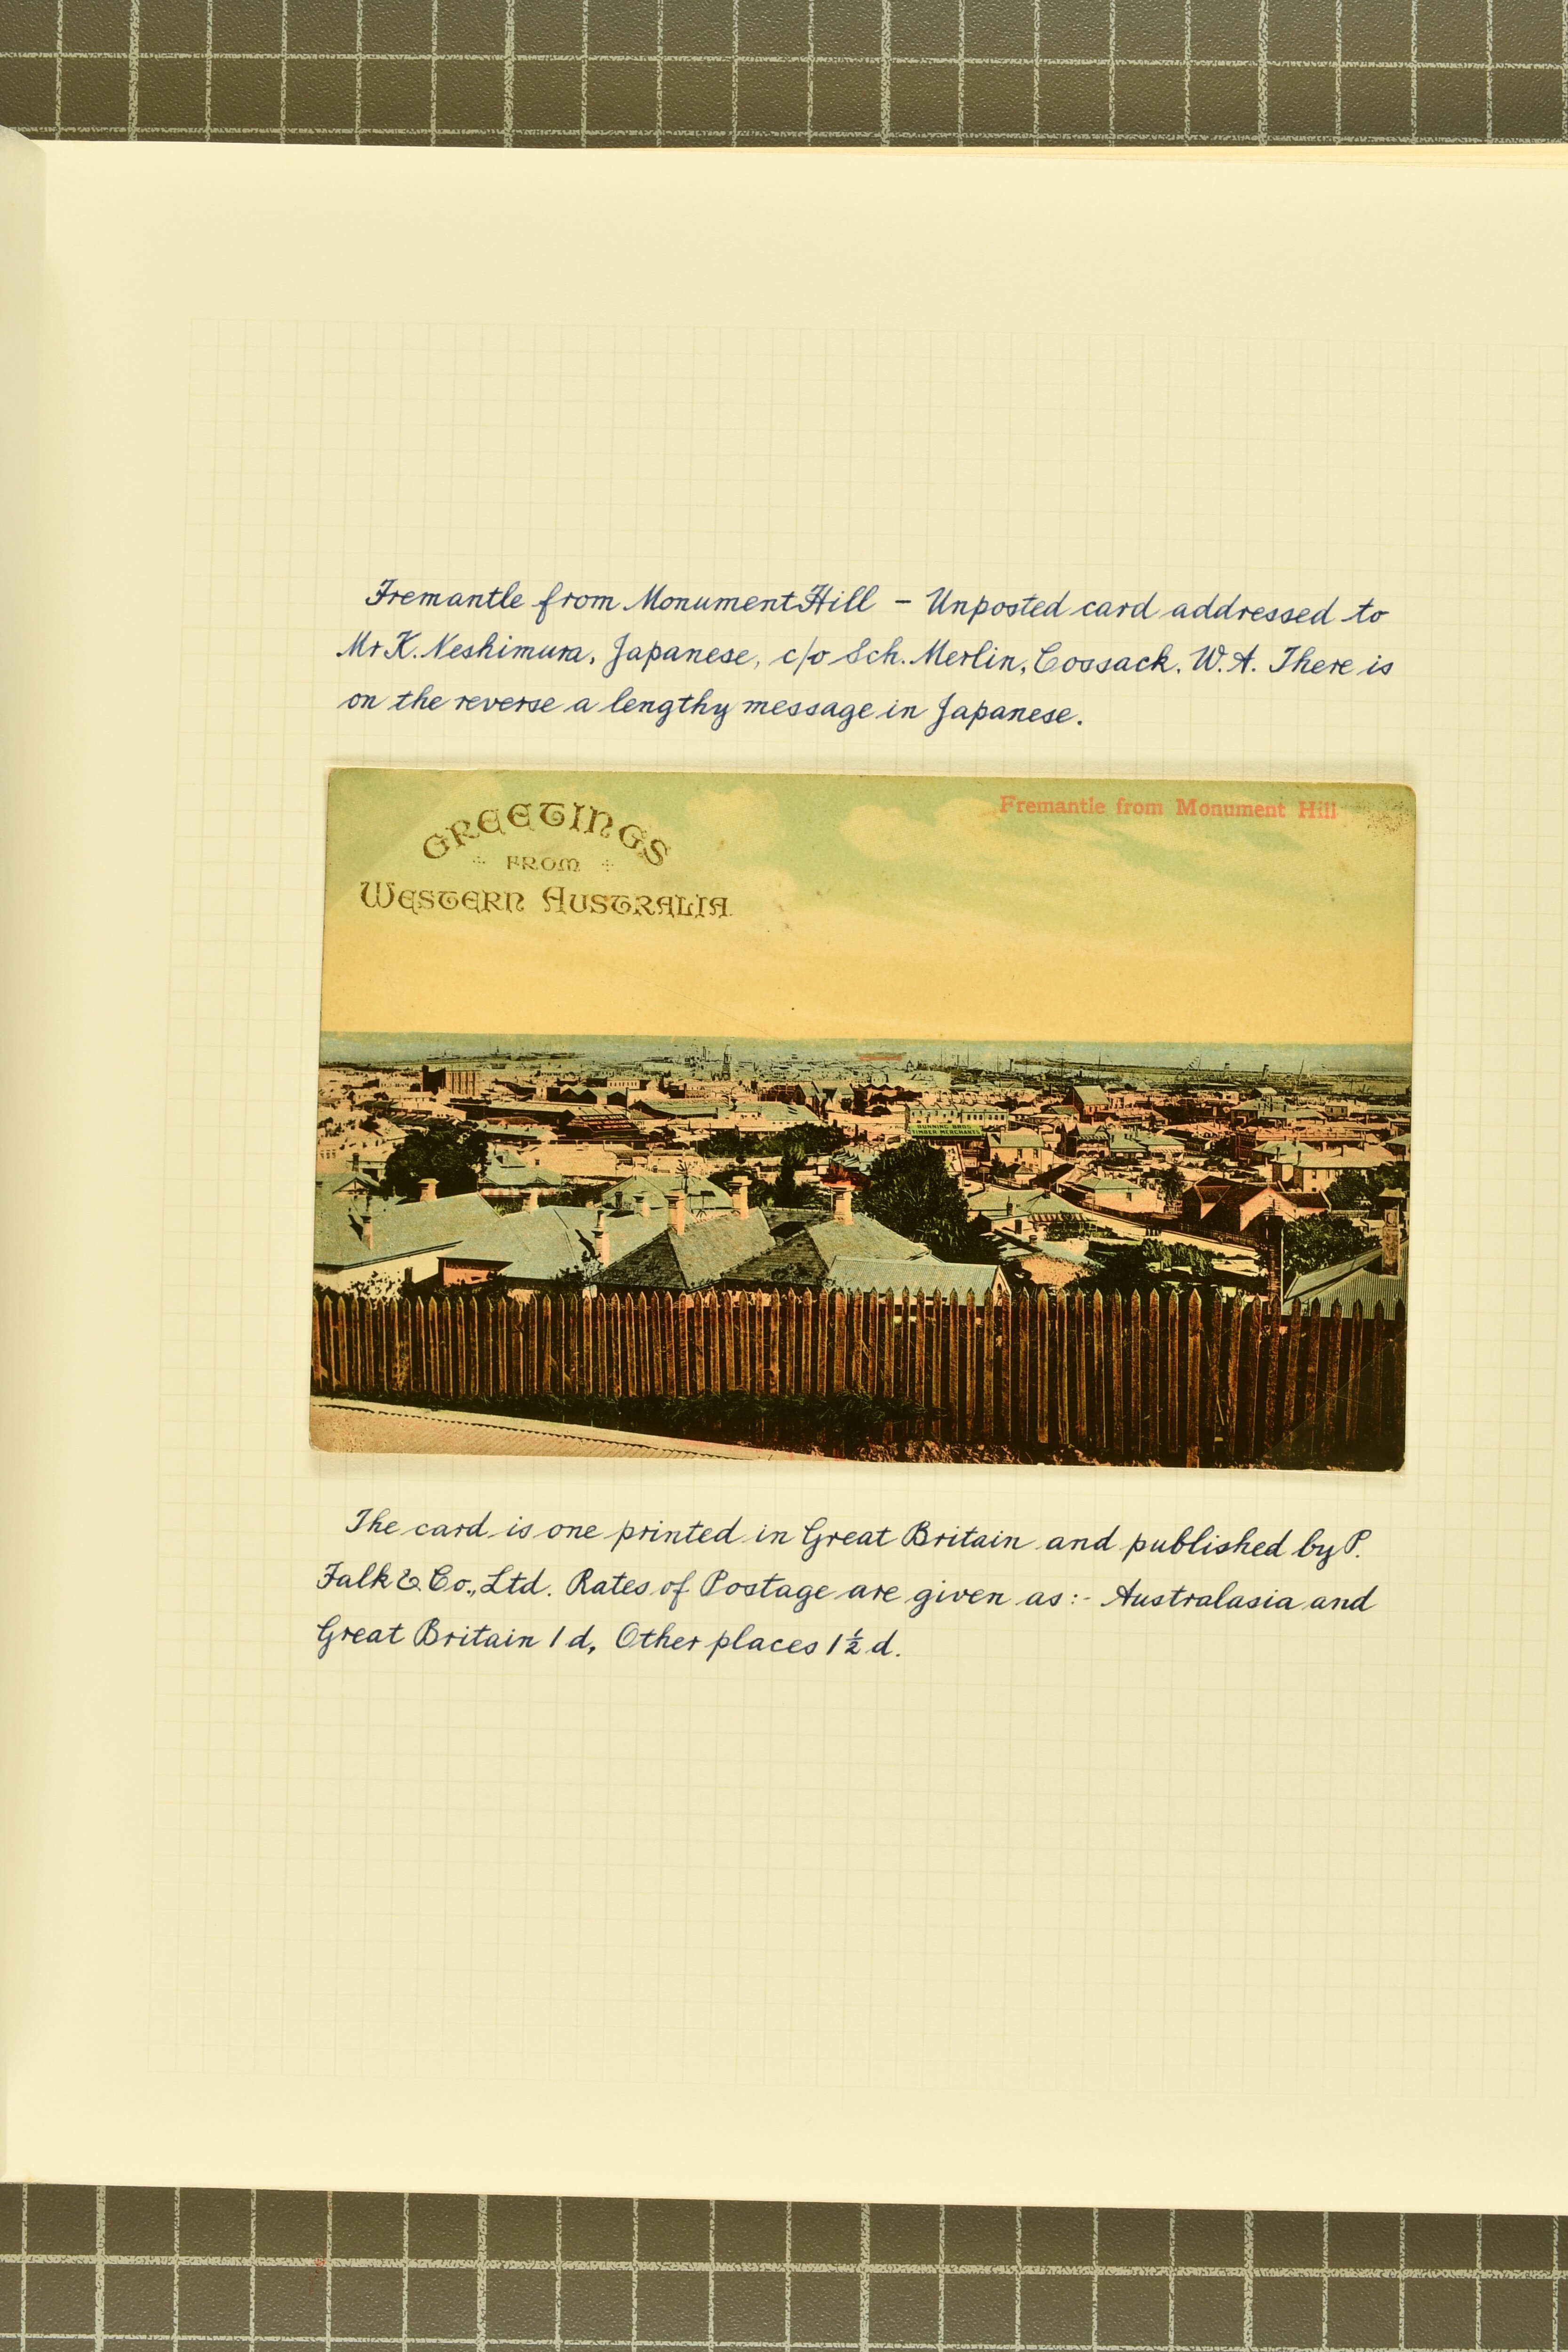 Fremantle from Monument Hill - Unposted card addressed to
Mr K. Neshimura, Japanese, c/o Sch. Merlin, Cossack, W.A. There is
on the reverse a lengthy message in Japanese.
GREETINGS
FROM
WESTERN AUSTRALIA
Fremantle from Monument Hill
BUNNING BROS
TIMBER MERCHANTS
The card is one printed in Great Britain and published by P.
Falk & Co., Ltd. Rates of Postage are given as:- Australasia and
Great Britain 1d, Other places 1½d.